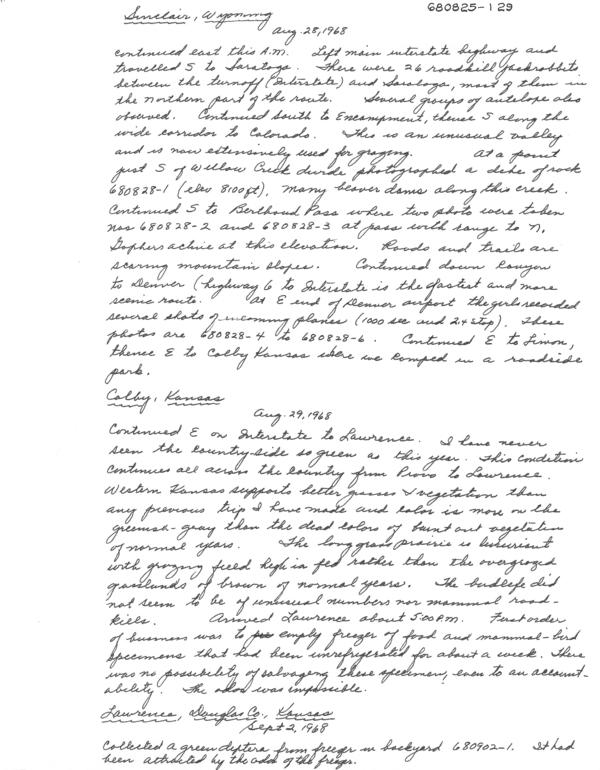 Sinclair, Wyoming
680825-129
Aug. 28, 1968
continued east this A.M. Left main interstate highway and
travelled S to Saratoga. There were 26 roadkill jackrabbits
between the turnoff (Interstate) and Saratoga, most of them in
the northern part of the route. Several groups of antelope also
observed. Continued south to Encampment, thence S along the
wide corridor to Colorado. This is an unusual valley
and is now extensively used for grazing. At a point
just S of Willow Creek divide photographed a dike of rock
680828-1 (elev 8100 ft), many beaver dams along this creek.
Continued S to Berthoud Pass where two photo were taken
nos 680828-2 and 680828-3 at pass with range to N,
Gophers active at this elevation. Roads and trails are
scaring mountain slopes. Continued down Canyon
to Denver (highway 6 to Interstate is the fastest and more
scenic route. At E end of Denver airport the girls recorded
several shots of incoming planes (1000 sec and 24 stop). These
photos are 680828-4 to 680828-6. Continued E to Limon,
thence E to Colby Kansas where we camped in a roadside
park.
Colby, Kansas
Aug. 29, 1968
Continued E on Interstate to Lawrence. I have never
seen the country-side so green as this year. This condition
continues all across the country from Provo to Lawrence.
Western Kansas supports better grasses & vegetation than
any previous trip I have made and color is more on the
greenish-gray than the dead colors of burnt out vegetation
of normal years. The long grass prairie is luxuriant
with grazing field high in fed rather than the overgrazed
grasslands of brown of normal years. The birdlife did
not seem to be of unusual numbers nor mammal road-
kills. Arrived Lawrence about 5:00 P.M. First order
of business was to empty freezer of food and mammal-bird
specimens that had been unrefrigerated for about a week. There
was no possibility of salvaging these specimen, even to an account-
ability. The odor was impossible.
Lawrence, Douglas Co., Kansas
Sept 2, 1968
Collected a green diptera from freezer in backyard 680902-1. It had
been attracted by the odor of the freezer.